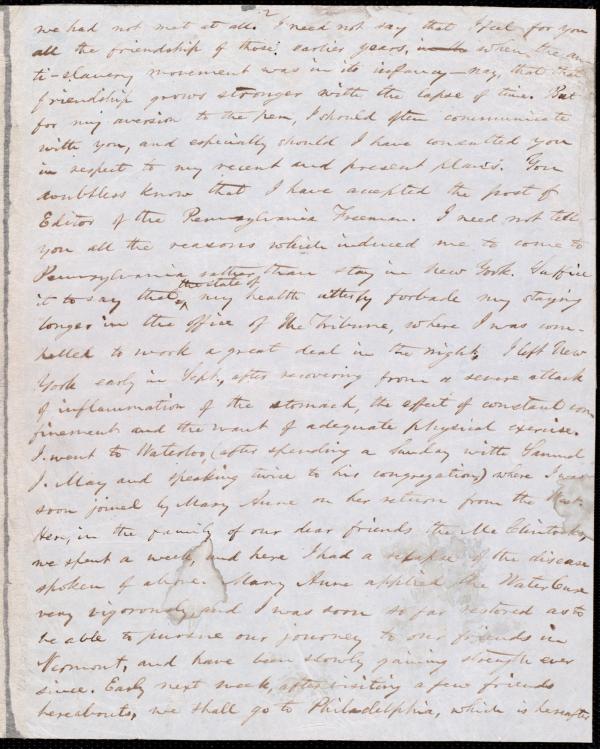 2
we had not met at all. I need not say that I feel for you
all the friendship of those earlier years, when the an-
ti-slavery movement was in its infancy—nay, that that
friendship grows stronger with the lapse of time. But
for my aversion to the pen, I should often communicate
with you, and especially should I have consulted you
in respect to my recent and present plans. You
doubtless know that I have accepted the post of
Editor of the Pennsylvania Freeman. I need not tell
you all the reasons which induced me to come to
Pennsylvania rather than stay in New York. Suffice
it to say that the state of my health utterly forbade my staying
longer in the office of The Tribune, where I was com-
pelled to work a great deal in the night. I left New
York early in Sept., after recovering from a severe attack
of inflammation of the stomach, the effect of constant con-
finement and the want of adequate physical exercise.
I went to Waterloo, (after spending a Sunday with Samuel
J. May and speaking twice to his congregation) where I was
soon joined by Mary Anne on her return from the West.
Here, in the family of our dear friends the McClintocks,
we spent a week, and here I had a relapse of the disease
spoken of above. Mary Anne applied the Water Cure
very vigorously, and I was soon so far restored as to
be able to pursue our journey to our friends in
Vermont, and have been slowly gaining strength ever
since. Early next week, after visiting a few friends
hereabouts, we shall go to Philadelphia, which is hereafter